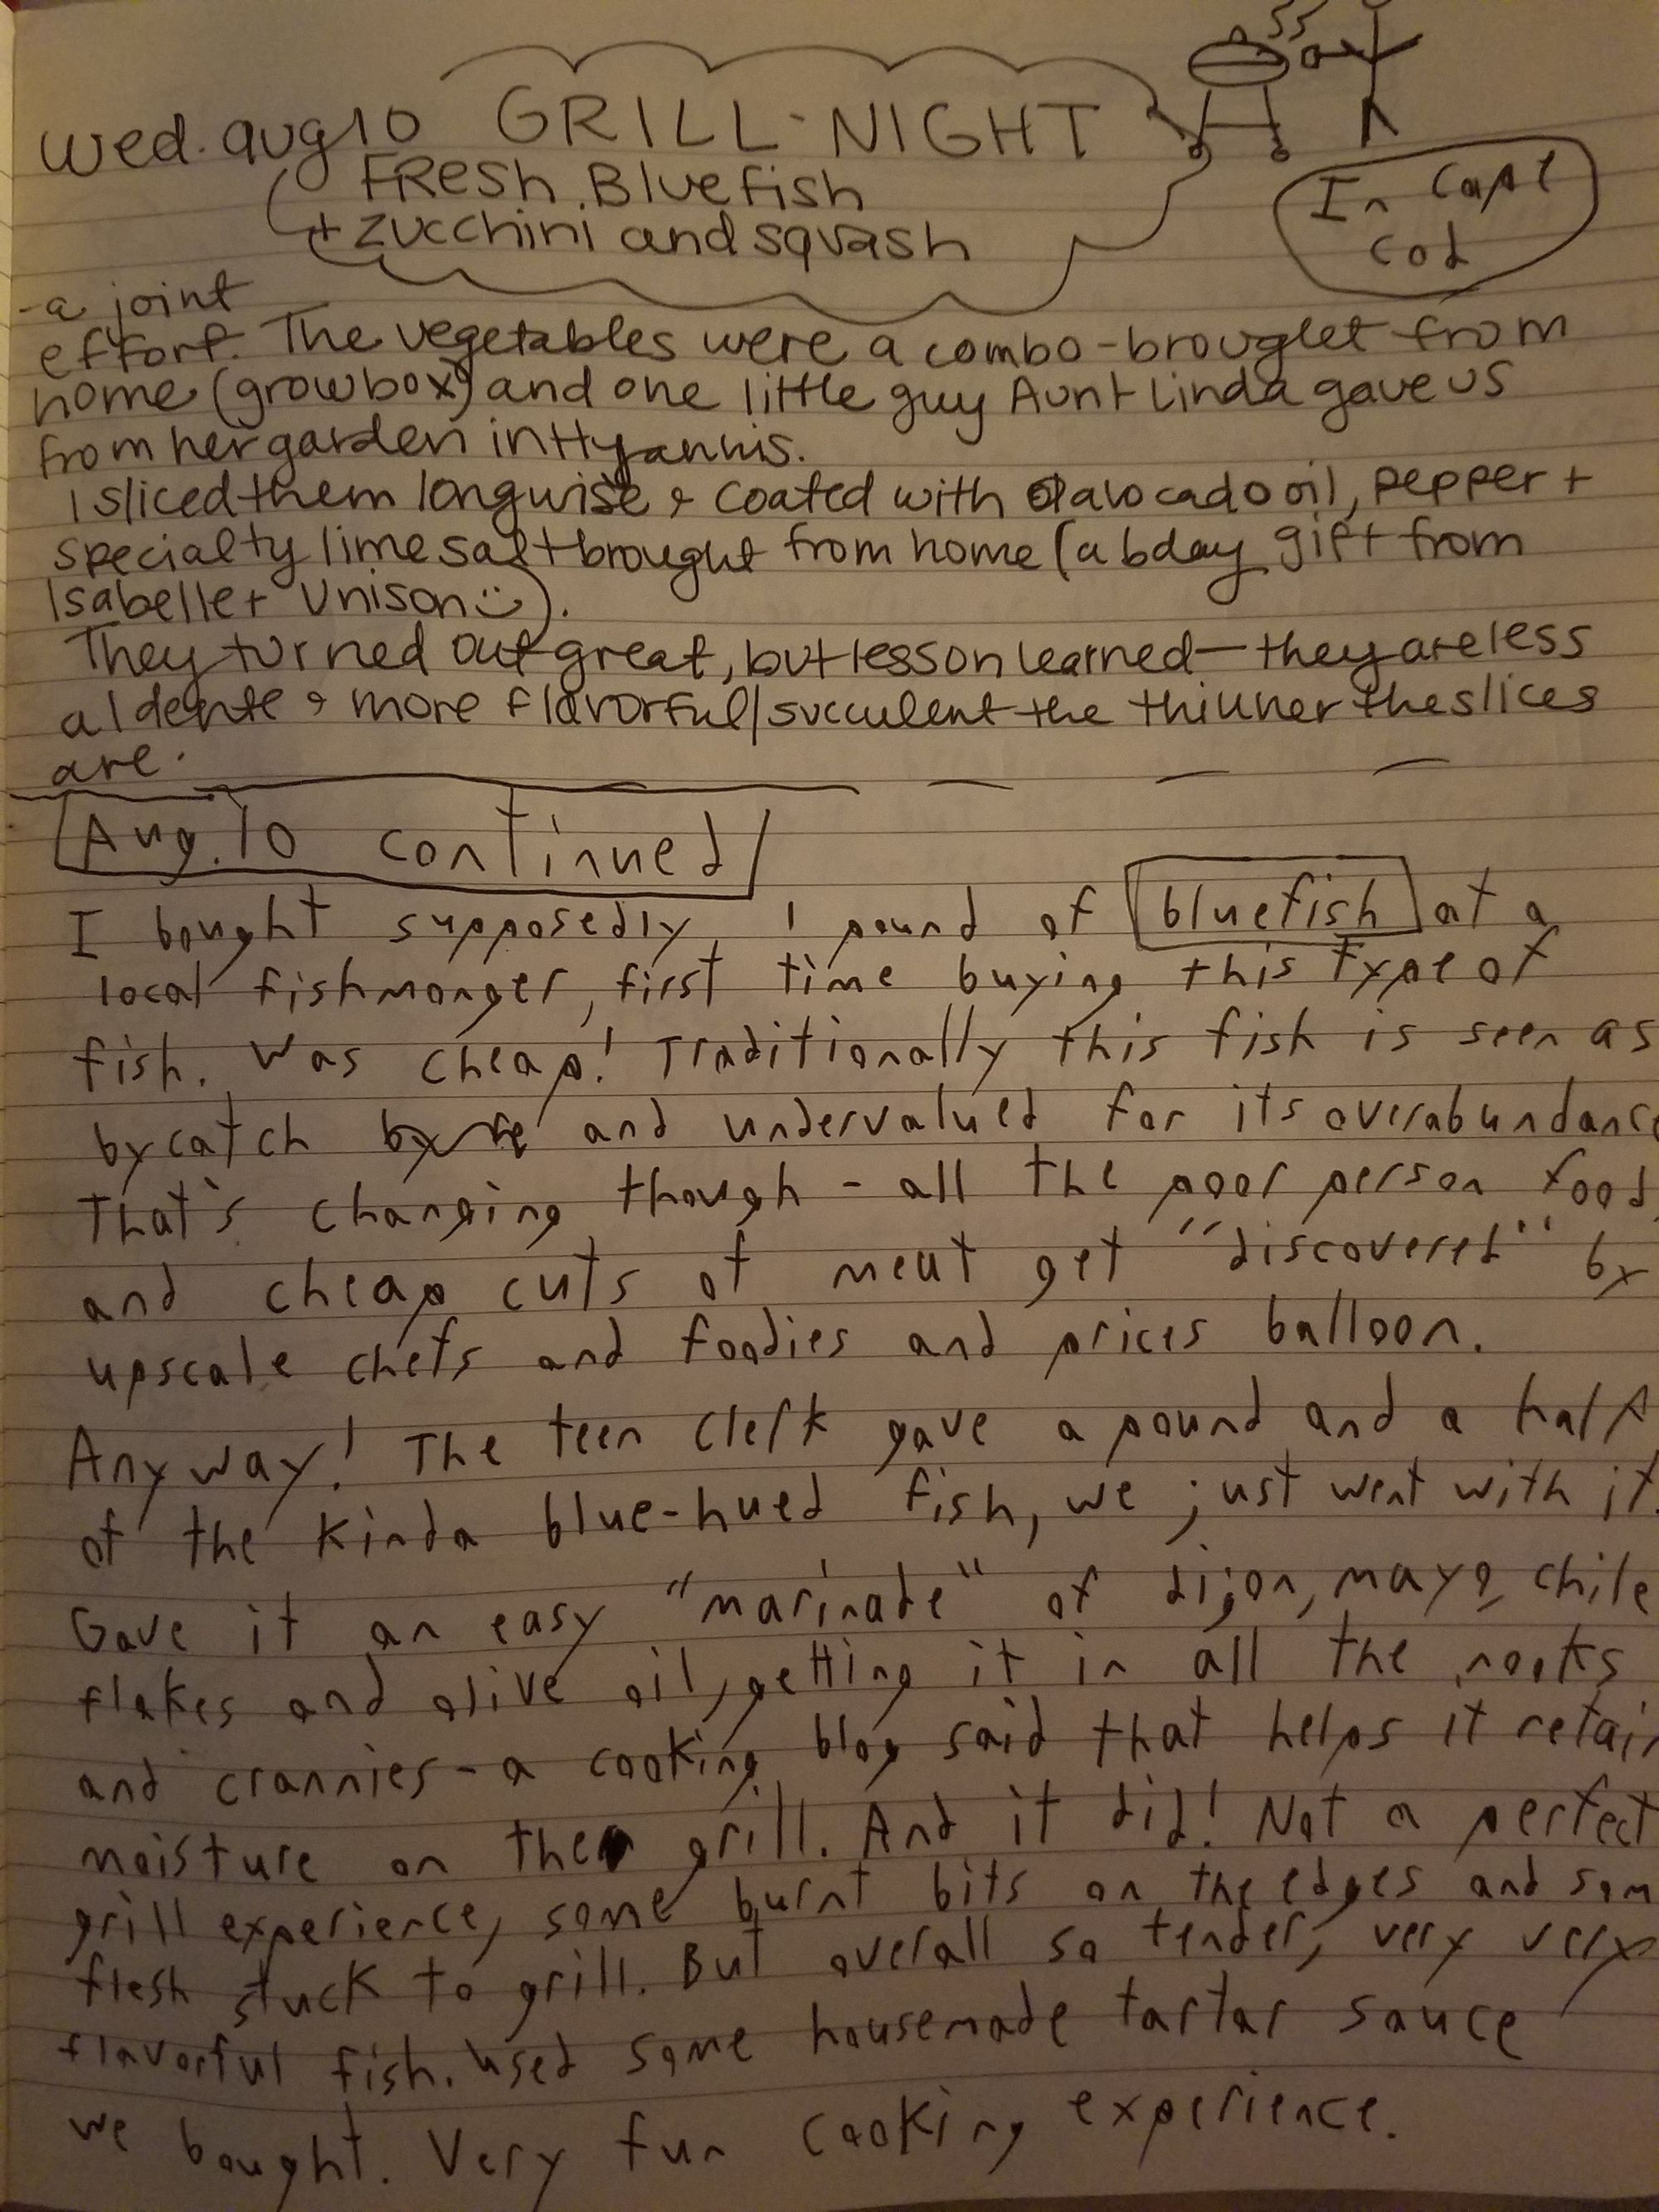 Wed. aug 10 GRILL NIGHT
FResh Bluefish
+ zucchini and squash
In Cape
Cod
- a joint
effort. The vegetables were a combo - brought from
home (growbox) and one little guy Aunt Linda gave us
from her garden in Hyannis.
I sliced them longwise & coated with avocado oil, pepper +
specialty lime salt brought from home (a bday gift from
Isabelle + Unison :)).
They turned out great, but lesson learned — they are less
al dente & more flavorful/succulent the thinner the slices
are.
Aug. 10 continued
I bought supposedly 1 pound of bluefish at a
local fishmonger, first time buying this type of
fish. Was cheap! Traditionally this fish is seen as
bycatch and undervalued for its overabundance
That's changing though - all the poor person food
and cheap cuts of meat get "discovered" by
upscale chefs and foodies and prices balloon.
Anyway! The teen clerk gave a pound and a half
of the kinda blue-hued fish, we just went with it.
Gave it an easy "marinade" of dijon, mayo, chile
flakes and olive oil, getting it in all the nooks
and crannies - a cooking blog said that helps it retain
moisture on the grill. And it did! Not a perfect
grill experience, some burnt bits on the edges and som
flesh stuck to grill. But overall so tender, very very
flavorful fish. Used some housemade tartar sauce
we bought. Very fun cooking experience.